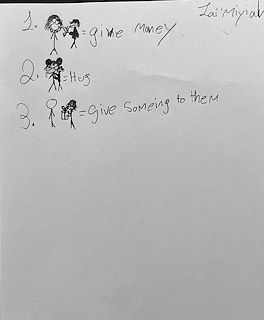 Zai'Miyiah
1. = give money
2. = Hug
3. = Give Someing to them